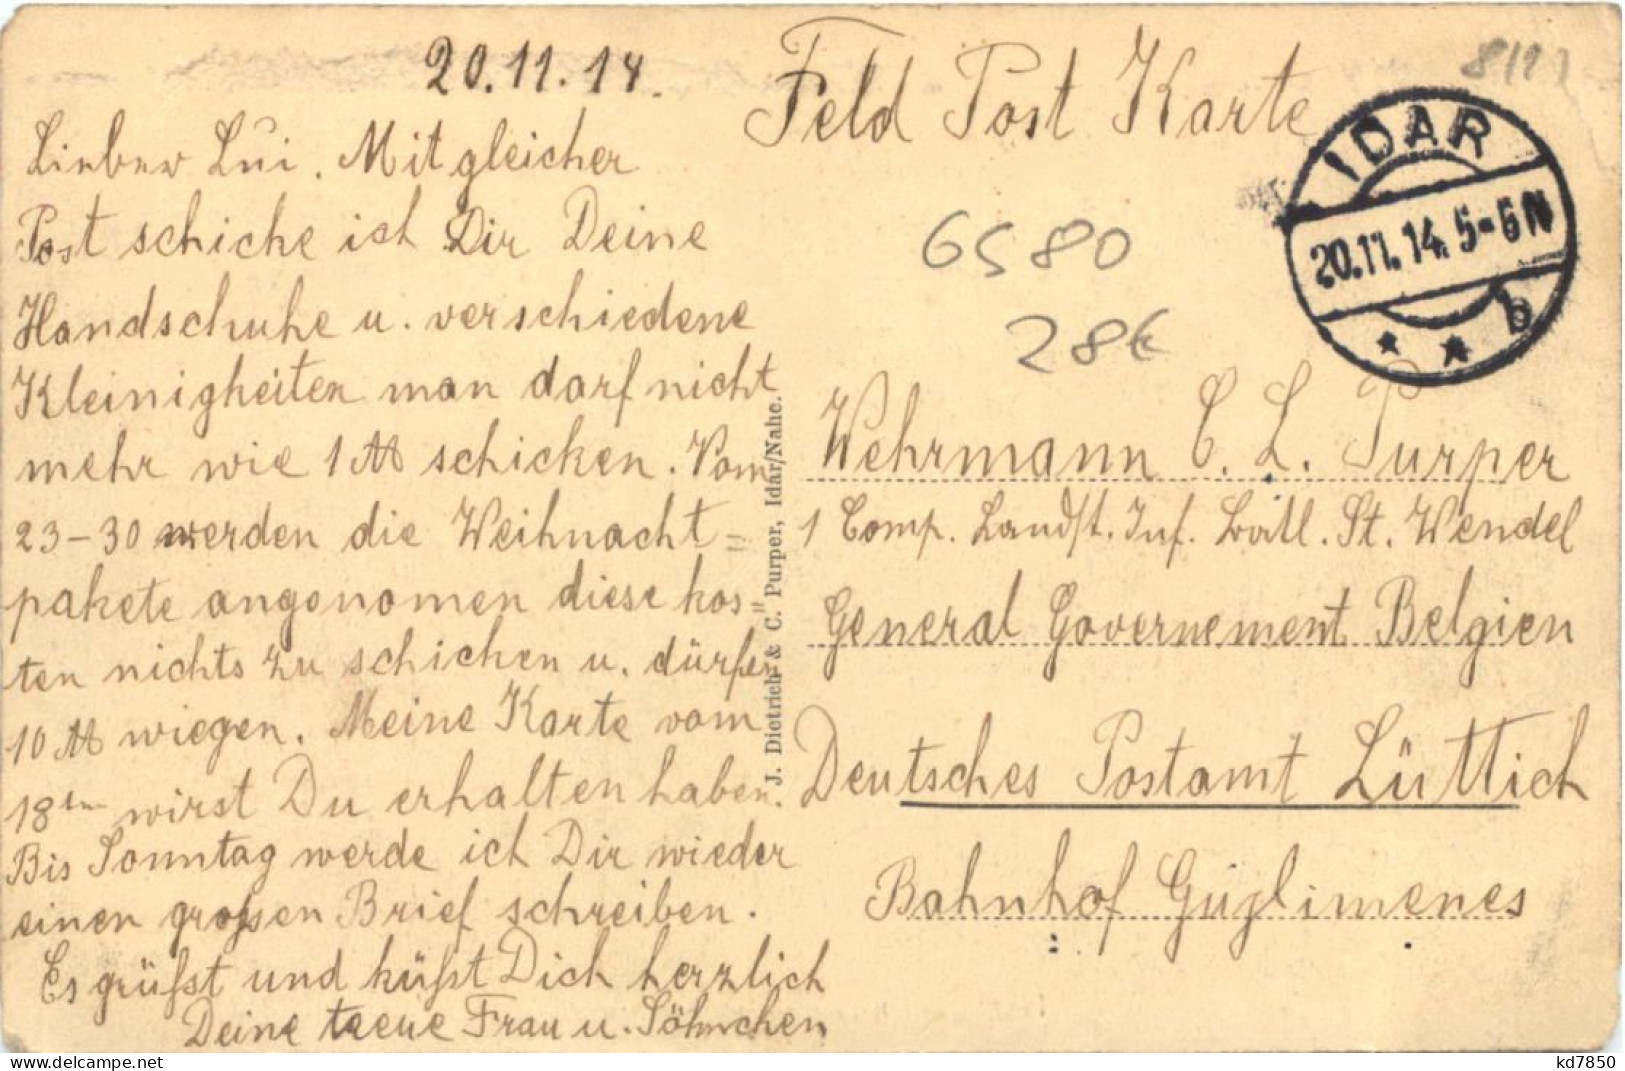 20.11.14.
Lieber Lui. Mit gleicher
Post schicke ich Dir Deine
Handschuhe u. verschiedene
Kleinigheiten man darf nicht
mehr wie 1 ℔ schicken. Vom
23-30 werden die Weihnacht=
pakete angenomen diese kos=
ten nichts zu schicken u. dürfen
10 ℔ wiegen. Meine Karte vom
18ten wirst Du erhalten haben.
Bis Sonntag werde ich Dir wieder
einen großen Brief schreiben.
Es grüßt und küßt Dich herzlich
Deine treue Frau u. Söhnchen
J. Dietrich & C. Purper, Idar/Nahe.
Feld Post Karte
IDAR
20.11.14. 5-6 N
* * b
6580
28€
Wehrmann C. L. Purper
1 Comp. Landst. Inf. Batl. St. Wendel
General Governement Belgien
Deutsches Postamt Lüttich
Bahnhof Güglimenes
delcampe.net
kd7850